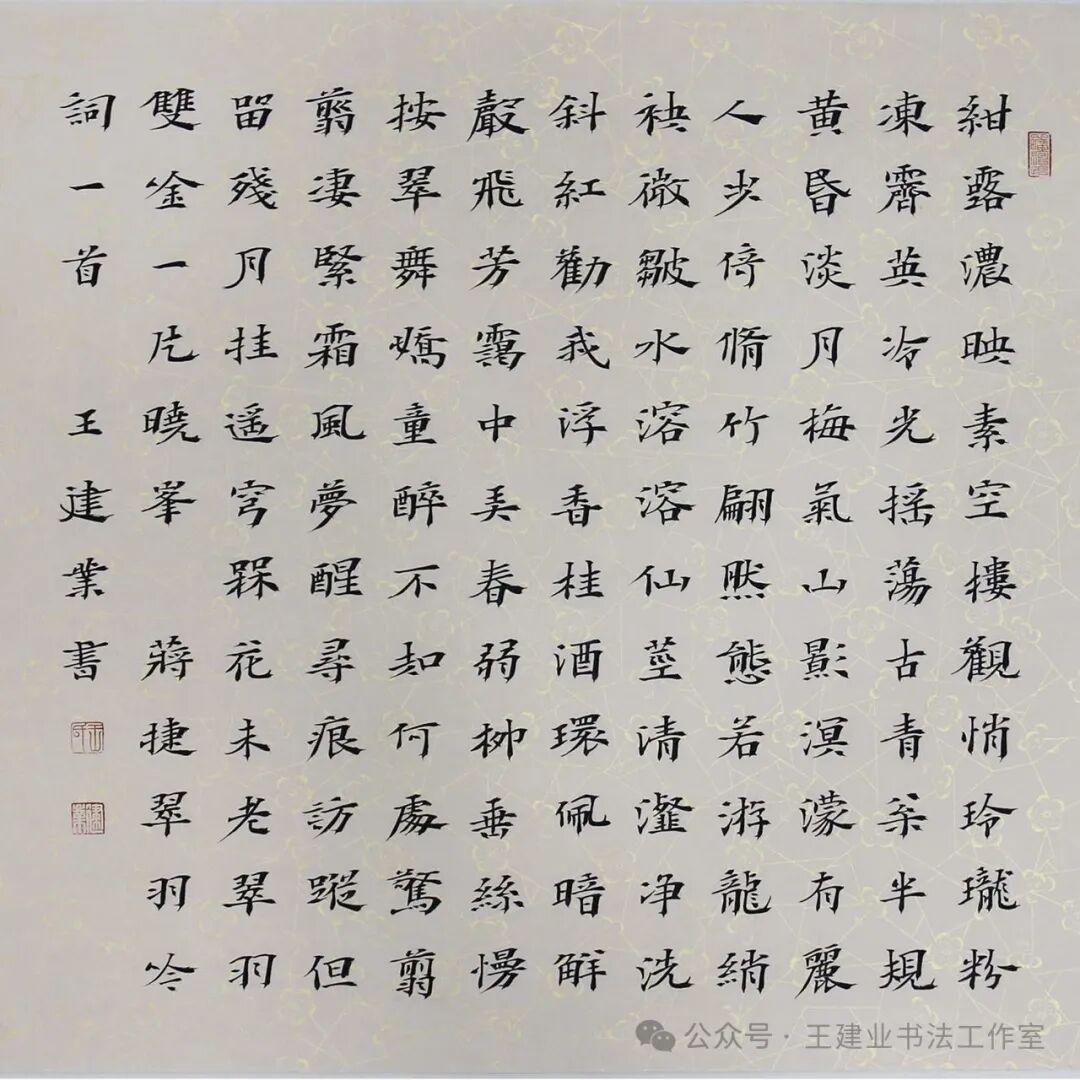 紺露濃映素空樓觀悄玲瓏粉
凍霽英冷光摇蕩古青枀半規
黄昬淡月梅氣山影溟濛有麗
人步倚脩竹翩然態若游龍綃
袂微皺水溶溶仙莖清瀣净洗
斜紅勸我浮香桂酒環佩暗解
聲飛芳靄中美春弱柳垂絲慢
按翠舞嬌童醉不知何處驚翦
翦凄緊霜風夢醒尋痕訪蹤但
留殘月挂遥穹槑花未老翠羽
雙唫一片曉峯 蔣捷翠羽吟
詞一首 王建業書
公众号·王建业书法工作室